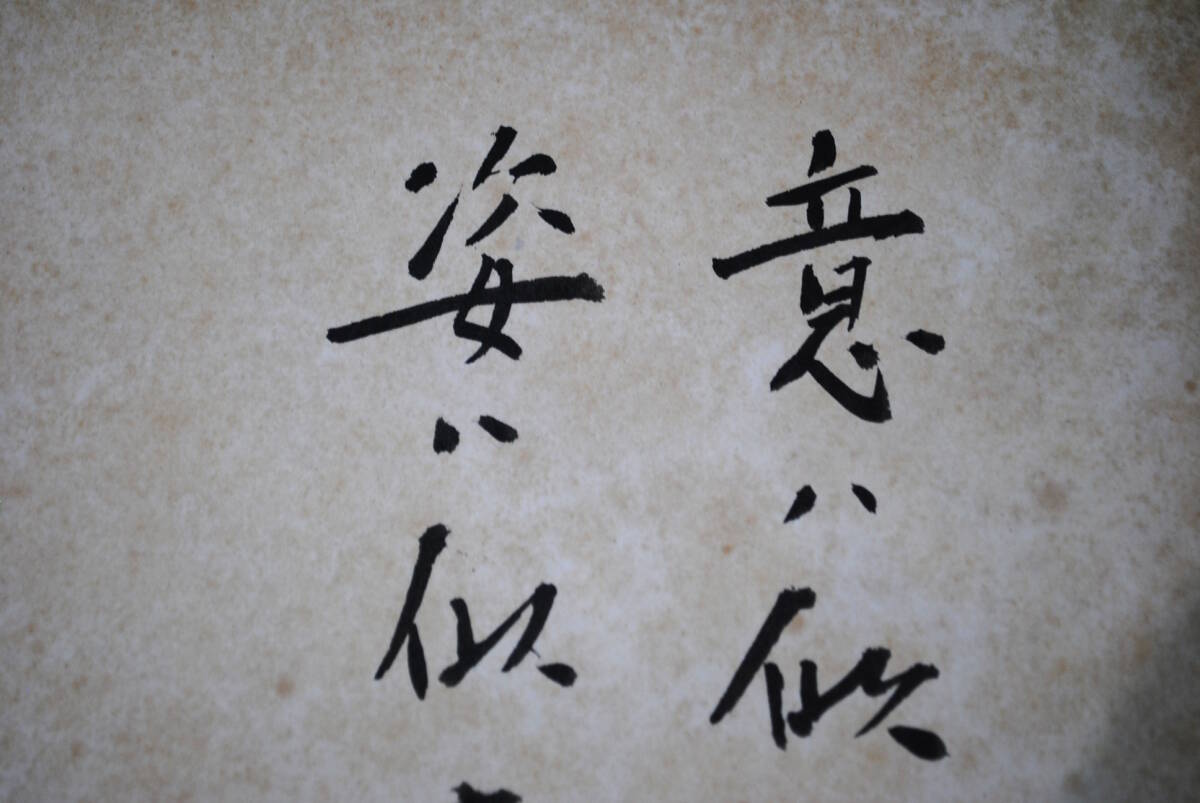 意ハ似
姿ハ似